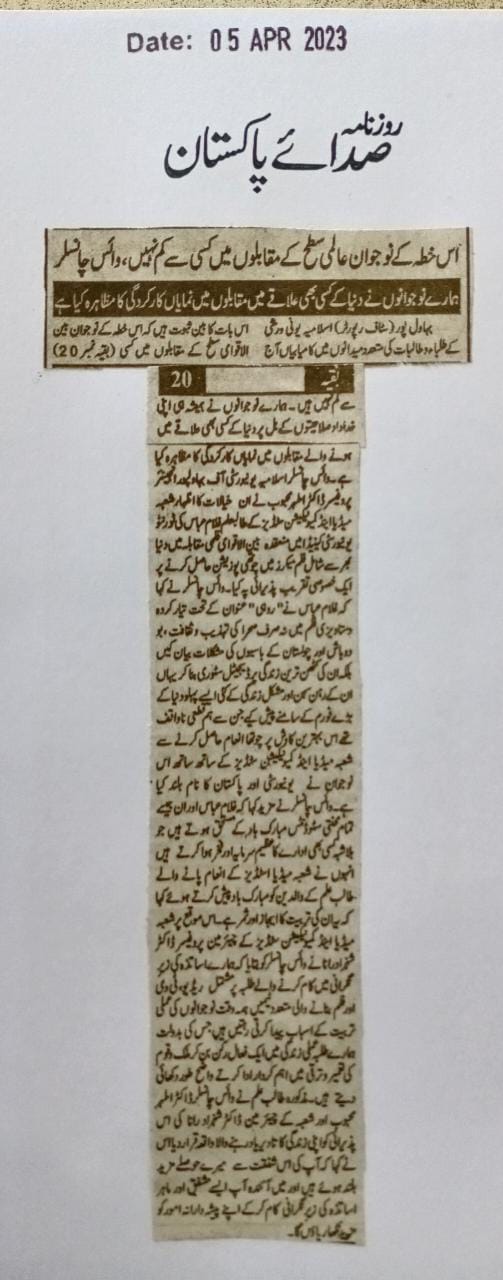 Date: 05 APR 2023
روزنامہ
صدائے پاکستان
اس خطہ کے نوجوان عالمی سطح کے مقابلوں میں کسی سے کم نہیں، وائس چانسلر
ہمارے نوجوانوں نے دنیا کے کسی بھی علاقے میں مقابلوں میں نمایاں کارکردگی کا مظاہرہ کیا ہے
بہاول پور (سٹاف رپورٹر) اسلامیہ یونی ورسٹی
کے طلباء و طالبات کی متعدد میدانوں میں کامیابیاں آج
اس بات کا بین ثبوت ہیں کہ اس خطہ کے نوجوان بین
الاقوامی سطح کے مقابلوں میں کسی (بقیہ نمبر 20)
بقیہ 20
سے کم نہیں ہیں۔ ہمارے نوجوانوں نے ہمیشہ ہی اپنی
خداداد صلاحیتوں کے بل پر دنیا کے کسی بھی علاقے میں
ہونے والے مقابلوں میں نمایاں کارکردگی کا مظاہرہ کیا
ہے۔ وائس چانسلر اسلامیہ یونیورسٹی آف بہاولپور انجینئر
پروفیسر ڈاکٹر اطہر محبوب نے ان خیالات کا اظہار شعبہ
میڈیا اینڈ کمیونیکیشن سٹڈیز کے طالبعلم غلام عباس کی ٹورنٹو
یونیورسٹی کینیڈا میں منعقدہ بین الاقوامی فلمی مقابلہ میں دنیا
بھر سے شامل فلم میکرز میں چوتھی پوزیشن حاصل کرنے پر
ایک خصوصی تقریب پذیرائی پہ کیا۔ وائس چانسلر نے کہا
کہ غلام عباس نے "روہی" عنوان کے تحت تیار کردہ
دستاویزی فلم میں نہ صرف صحرا کی تہذیب و ثقافت، بو
دوباش اور چولستان کے باسیوں کی مشکلات بیان کیں
بلکہ ان کی کٹھن ترین زندگی پر ڈیجیٹل سٹوری بنا کر یہاں
ان کے رہن سہن اور مشکل زندگی کے کئی ایسے پہلو دنیا کے
بڑے فورم کے سامنے پیش کیے جن سے ہم قطعی ناواقف
تھے اس بہترین کاوش پر چوتھا انعام حاصل کرنے سے
شعبہ میڈیا اینڈ کمیونیکیشن سٹڈیز کے ساتھ ساتھ اس
نوجوان نے یونیورسٹی اور پاکستان کا نام بلند کیا
ہے۔ وائس چانسلر نے مزید کہا کہ غلام عباس اور ان جیسے
تمام محنتی سٹوڈنٹس مبارک باد کے مستحق ہوتے ہیں جو
بلاشبہ کسی بھی ادارے کا عظیم سرمایہ اور فخر ہوا کرتے ہیں
انہوں نے شعبہ میڈیا اسٹڈیز کے انعام پانے والے
طالب علم کے والدین کو مبارک باد پیش کرتے ہوئے کہا
کہ یہ ان کی تربیت کا اعجاز اور ثمر ہے۔ اس موقع پر شعبہ
میڈیا اینڈ کمیونیکیشن سٹڈیز کے چیئرمین پروفیسر ڈاکٹر
شہزاد رانا نے وائس چانسلر کو بتایا کہ ہمارے اساتذہ کی زیر
نگرانی میں کام کرنے والے طلبہ پر مشتمل ریڈیو، ٹی وی
اور فلم بنانے والی متعدد ٹیمیں ہمہ وقت نوجوانوں کی عملی
تربیت کے اسباب پیدا کرتی رہتیں ہیں جس کی بدولت
ہمارے طلبہ عملی زندگی میں ایک فعال رکن بن کر ملک و قوم
کی تعمیر و ترقی میں اہم کردار ادا کرتے واضح طور دکھائی
دیتے ہیں۔ مذکورہ طالب علم نے وائس چانسلر ڈاکٹر اطہر
محبوب اور شعبہ کے چیئرمین ڈاکٹر شہزاد رانا کی اس
پذیرائی کو اپنی زندگی کا تادیر یاد رہنے والا واقعہ قرار دیا اس
نے کہا کہ آپ کی اس شفقت سے میرے حوصلے مزید
بلند ہوئے ہیں اور میں آئندہ آپ ایسے شفیق اور ماہر
اساتذہ کی زیر نگرانی کام کر کے اپنے پیشہ ورانہ امور کو
مزید نکھار پاؤں گا۔